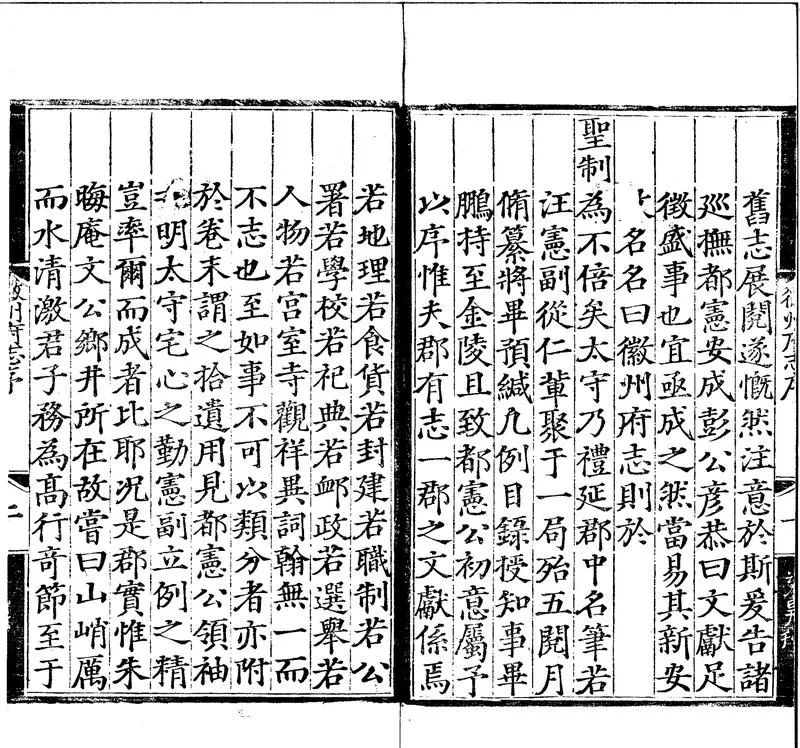 徽州府志序
一
舊志展閱遂慨然注意於斯爰告諸
廵撫都憲安成彭公彦恭曰文獻足
徵盛事也宜亟成之然當易其新安
名名曰徽州府志則於
聖制為不倍矣太守乃禮延郡中名筆若
汪憲副從仁軰聚于一局殆五閱月
脩纂將畢預緘凡例目錄授知事畢
鵬持至金陵且致都憲公初意屬予
以序惟夫郡有志一郡之文獻係焉
若地理若食貨若封建若職制若公
署若學校若祀典若郵政若選舉若
人物若宮室寺觀祥異詞翰無一而
不志也至如事不可以類分者亦附
於卷末謂之拾遺用見都憲公領袖
明太守宅心之勤憲副立例之精
豈率爾而成者比耶况是郡實惟朱
晦庵文公鄉井所在故嘗曰山峭厲
而水清激君子務為髙行竒節至于
徽州府志序
二